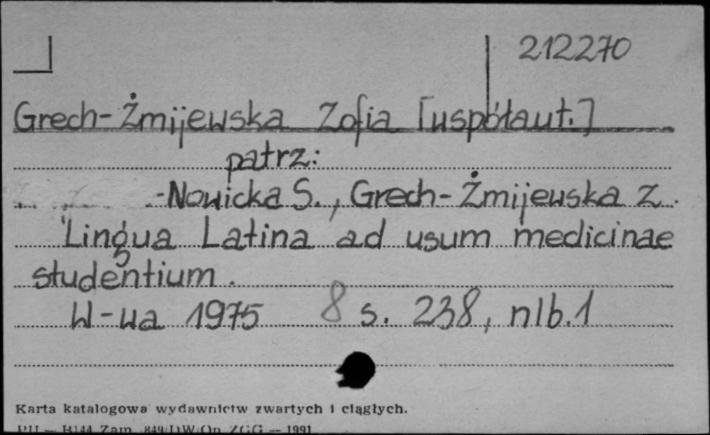 212270
Grech-Żmijewska Zofia [współaut.]
patrz:
-Nowicka S., Grech-Żmijewska Z.
Lingua Latina ad usum medicinae
studentium.
W-wa 1975 8 s. 238, nlb.1
Karta katalogowa wydawnictw zwartych i ciągłych.
Zam. — 1991